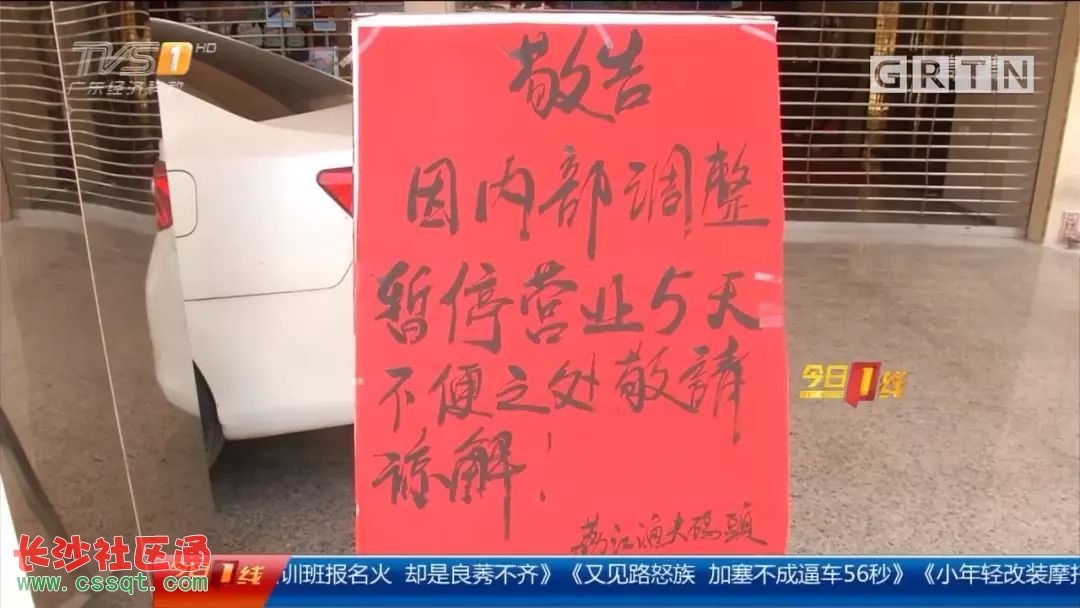 TVS1 HD
广东经济科教
GRTN
敬告
因内部调整
暂停营业5天
不便之处敬請
谅解!
江渔夫码頭
今日1线
长沙社区通
www.cssqt.com
1线
训班报名火 却是良莠不齐》《又见路怒族 加塞不成逼车56秒》《小年轻改装摩托